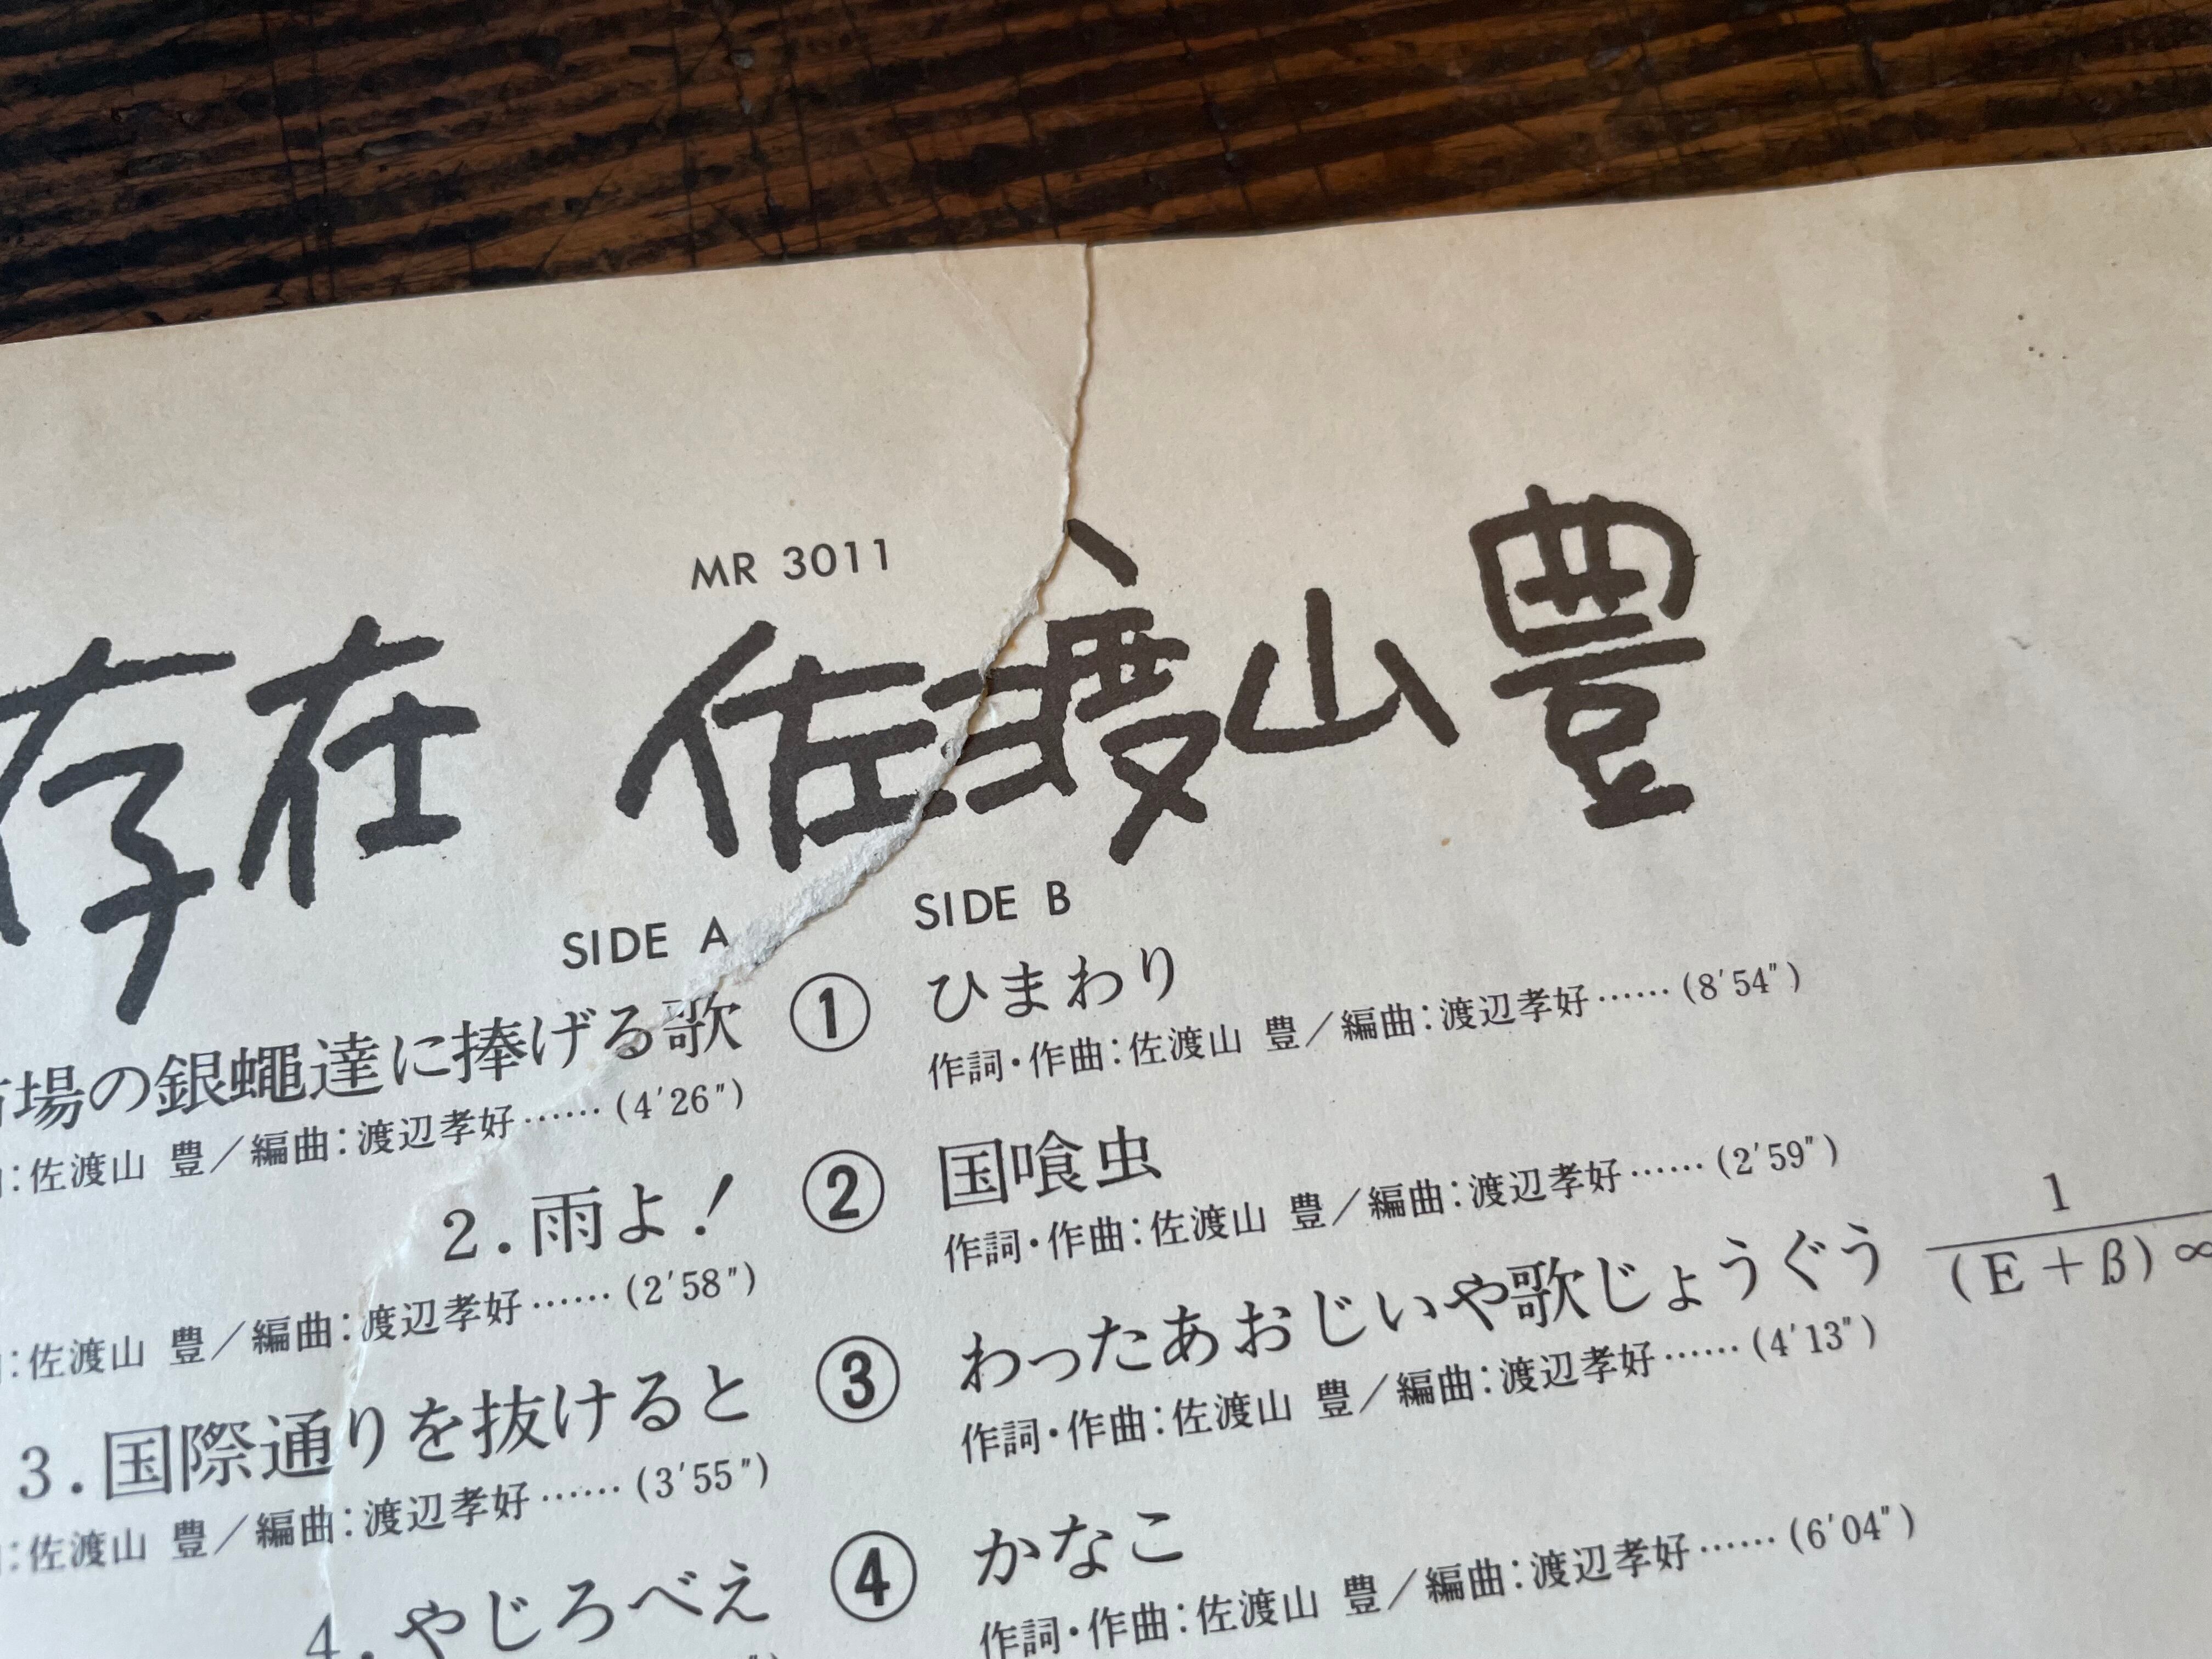 MR 3011
存在 佐渡山豊
SIDE A
場の銀蠅達に捧げる歌
:佐渡山 豊/編曲:渡辺孝好……(4′26″)
2.雨よ!
:佐渡山 豊/編曲:渡辺孝好……(2′58″)
3.国際通りを抜けると
:佐渡山 豊/編曲:渡辺孝好……(3′55″)
4.やじろべえ
SIDE B
① ひまわり
作詞・作曲:佐渡山 豊/編曲:渡辺孝好……(8′54″)
② 国喰虫
作詞・作曲:佐渡山 豊/編曲:渡辺孝好……(2′59″)
③ わったあおじいや歌じょうぐう 1/(E+ß)∞
作詞・作曲:佐渡山 豊/編曲:渡辺孝好……(4′13″)
④ かなこ
作詞・作曲:佐渡山 豊/編曲:渡辺孝好……(6′04″)